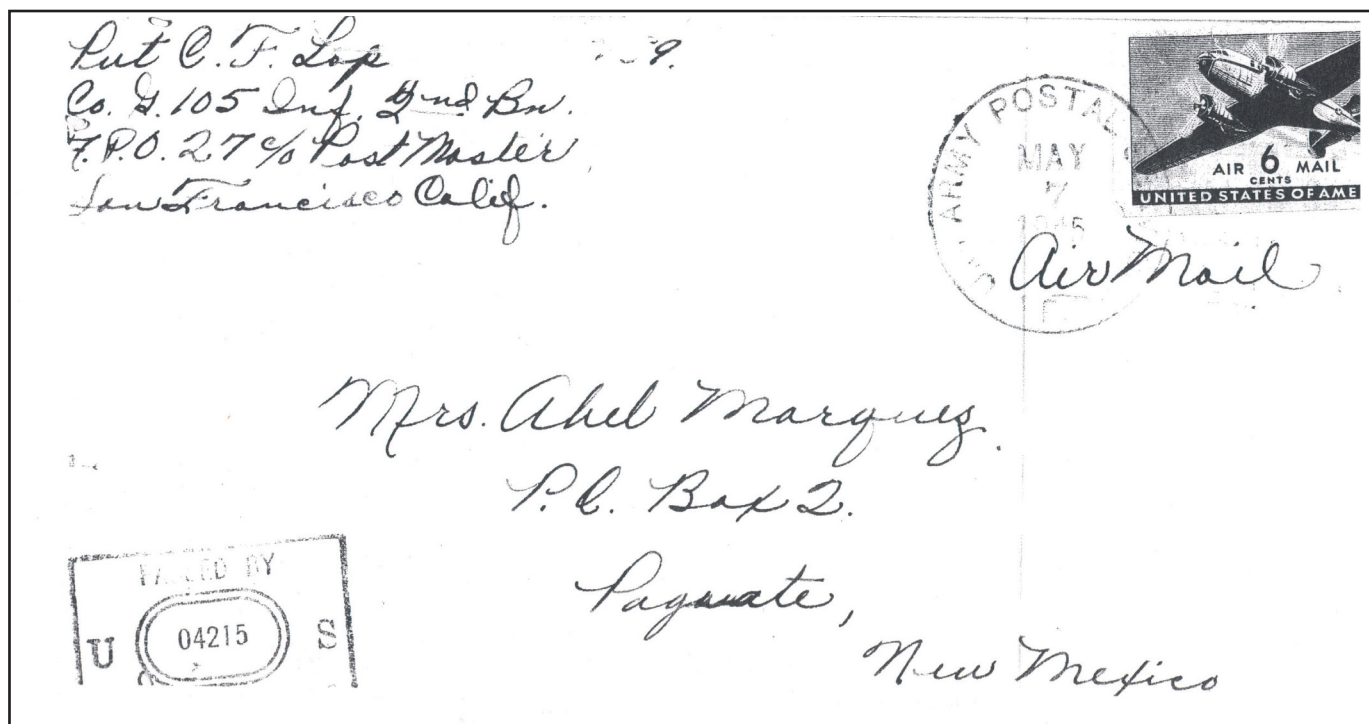 Pvt C. F. Lop 9.
Co. G. 105 Inf. 2nd Bn.
A.P.O. 27 c/o Post Master
San Francisco Calif.
ARMY POSTAL
MAY
7
1945
AIR 6 MAIL
CENTS
UNITED STATES OF AME
Air Mail
Mrs. Abel Marquez.
P.O. Box 2.
Paguate,
New Mexico
PASSED BY
U 04215 S